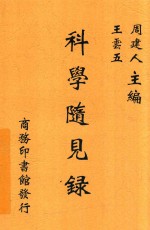 周建人
王雲五
主編
科學隨見録
商務印書館發行